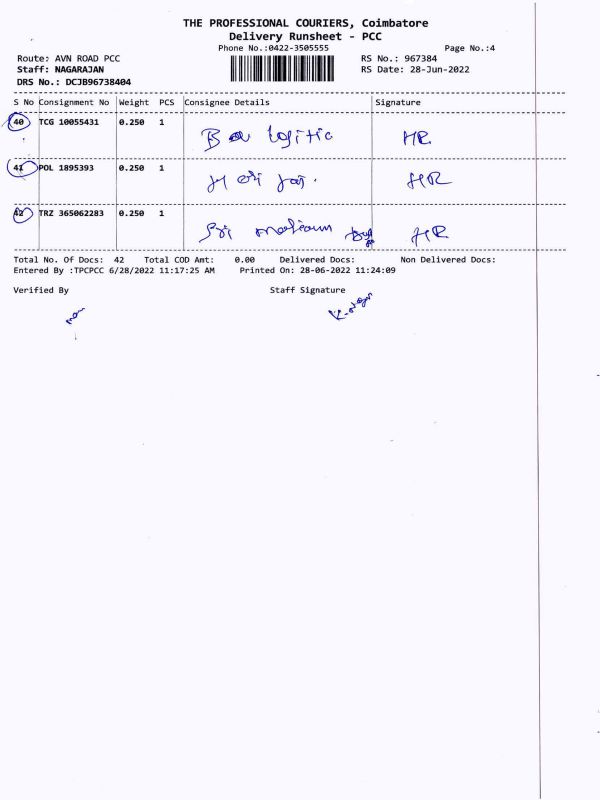 THE PROFESSIONAL COURIERS, Coimbatore
Delivery Runsheet - PCC
Phone No.:0422-3505555 Page No.:4
Route: AVN ROAD PCC RS No.: 967384
Staff: NAGARAJAN RS Date: 28-Jun-2022
DRS No.: DCJB96738404
S No Consignment No Weight PCS Consignee Details Signature
40 TCG 10055431 0.250 1 HR
41 POL 1895393 0.250 1 HR
42 TRZ 365062283 0.250 1 Sri HR
Total No. Of Docs: 42 Total COD Amt: 0.00 Delivered Docs: Non Delivered Docs:
Entered By :TPCPCC 6/28/2022 11:17:25 AM Printed On: 28-06-2022 11:24:09
Verified By Staff Signature